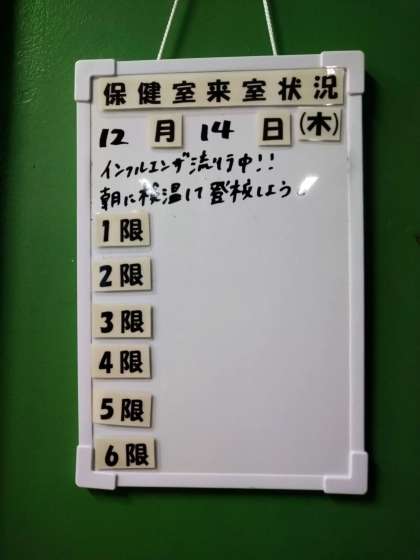 保健室来室状況
12月14日(木)
インフルエンザ流行中!!
朝に検温して登校しよう
1限
2限
3限
4限
5限
6限